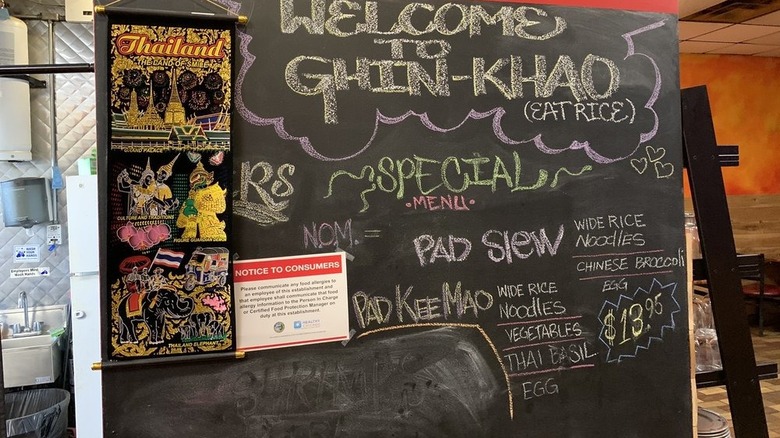 WELCOME
TO
GHIN-KHAO
(EAT RICE)
Thailand
THE LAND OF SMILE
GRAND PALACE
CULTURE AND TRADITIONS
THAILAND ELEPHANT
RS
SPECIAL
MENU
NOM. =
PAD SIEW
WIDE RICE
NOODLES
CHINESE BROCCOLI
EGG
PAD KEE MAO
WIDE RICE
NOODLES
VEGETABLES
THAI BASIL
EGG
$13.95
NOTICE TO CONSUMERS
Please communicate any food allergies to
an employee of this establishment and
that employee shall communicate that food
allergy information to the Person in Charge
or Certified Food Protection Manager on
duty at this establishment.